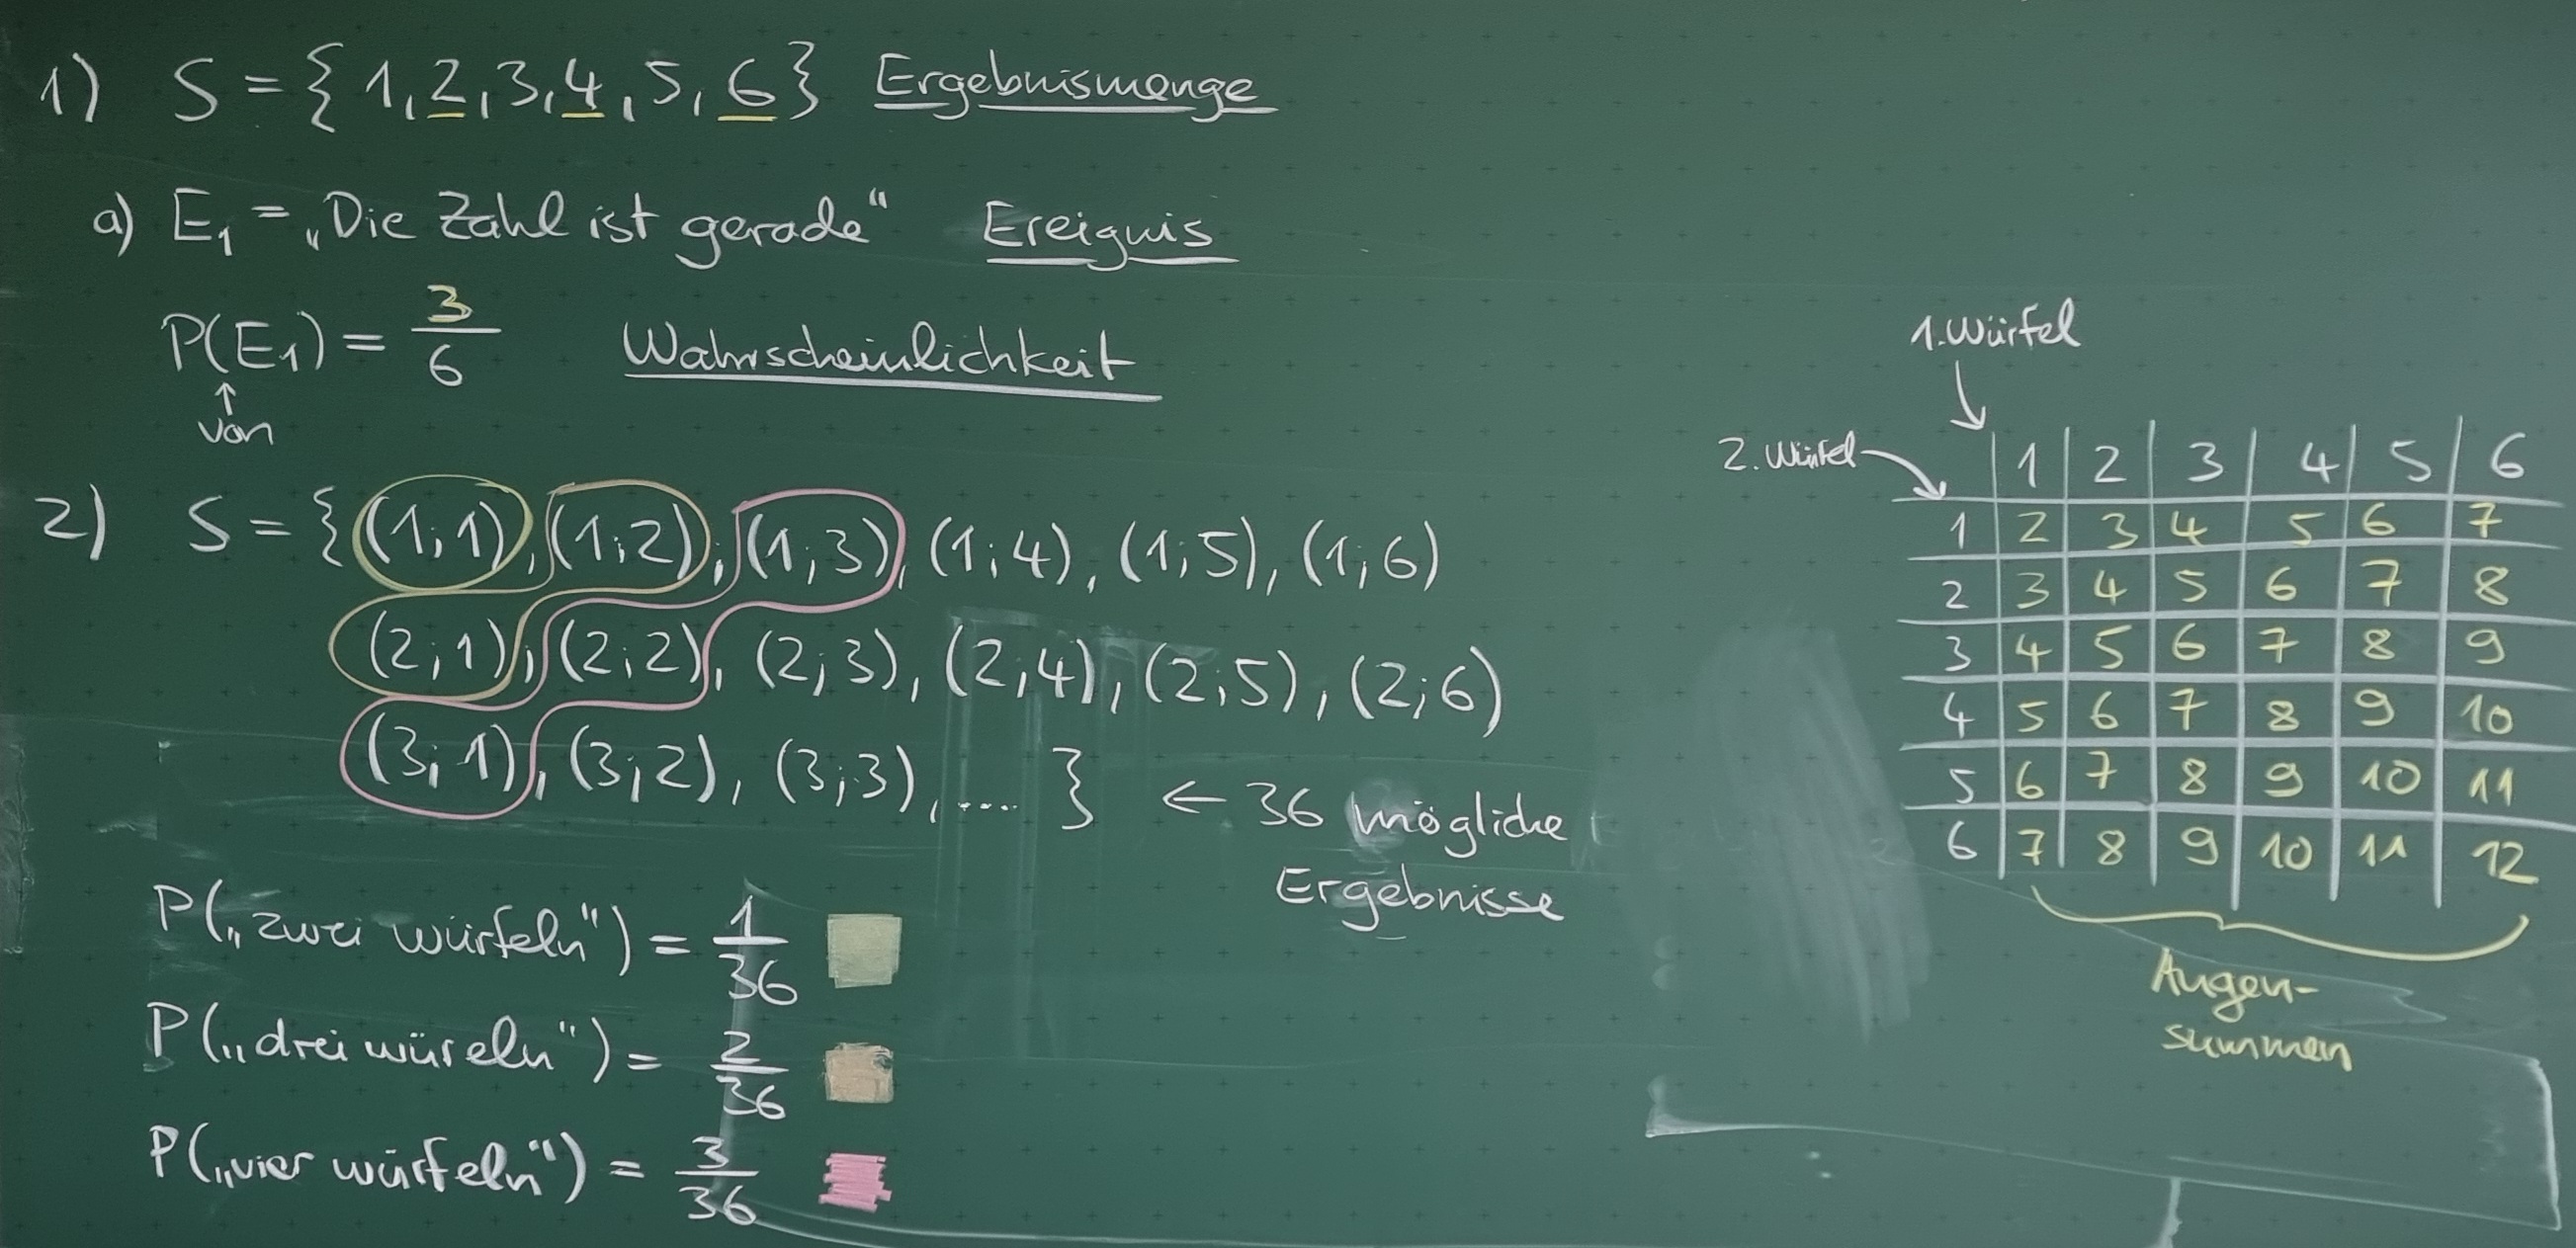 1) S = { 1, 2, 3, 4, 5, 6 } Ergebnismenge
a) E₁ = „Die Zahl ist gerade“ Ereignis
P(E₁) = 3/6 Wahrscheinlichkeit
↑
von
2) S = { (1;1), (1;2), (1;3), (1;4), (1;5), (1;6)
(2;1), (2;2), (2;3), (2;4), (2;5), (2;6)
(3;1), (3;2), (3;3), .... } ← 36 mögliche
Ergebnisse
P(„zwei würfeln“) = 1/36
P(„drei würeln“) = 2/36
P(„vier würfeln“) = 3/36
1. Würfel
2. Würfel
1 2 3 4 5 6
1 2 3 4 5 6 7
2 3 4 5 6 7 8
3 4 5 6 7 8 9
4 5 6 7 8 9 10
5 6 7 8 9 10 11
6 7 8 9 10 11 12
Augen-
summen